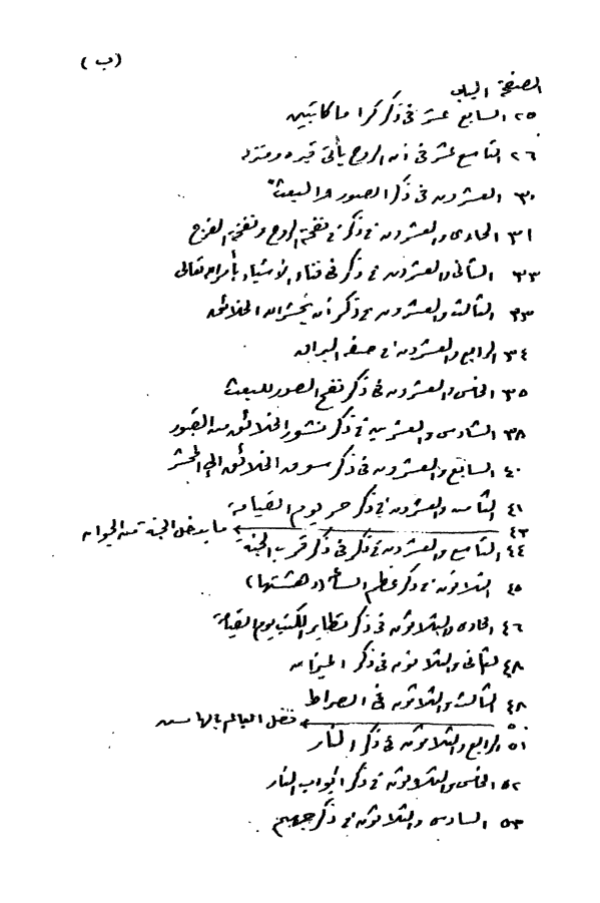 (ب)
الصفحة الباب
٢٥ السابع عشر فى ذكر كراما كاتبين
٢٦ التاسع عشر فى ان الروح يأتى قبره ومنزله
٣٠ العشرون فى ذكر الصور والبعث
٣١ الحادى والعشرون فى ذكر نفخة الروح ونفخة الفزع
٣٣ الثانى والعشرون فى ذكر فى فناء الأشياء بأمر الله تعالى
٣٣ الثالث والعشرون فى ذكر أن يحشر الله الخلائق
٣٤ الرابع والعشرون فى صفة البراق
٣٥ الخامس والعشرون فى ذكر نفخ الصور للبعث
٣٨ السادس والعشرين فى ذكر منشور الخلائق من القبور
٤٠ السابع والعشرون فى ذكر سوق الخلائق الى المحشر
٤١ الثامن والعشرون فى ذكر حر يوم القيامة
٤٣ ما يدخل الجنة من الحيوان
٤٤ التاسع والعشرون فى ذكر فى ذكر قرب الجنة
٤٥ الثلاثون فى ذكر عظم الساعة (دهشتها)
٤٦ الحادى والثلاثون فى ذكر تطاير الكتب يوم القيامة
٤٨ الثانى والثلاثون فى ذكر الميزان
٤٨ الثالث والثلاثون فى الصراط
٥٠ فضل العالم
٥١ الرابع والثلاثون فى ذكر النار
٥٢ الخامس والثلاثون فى ذكر أبواب النار
٥٣ السادس والثلاثون فى ذكر جهنم